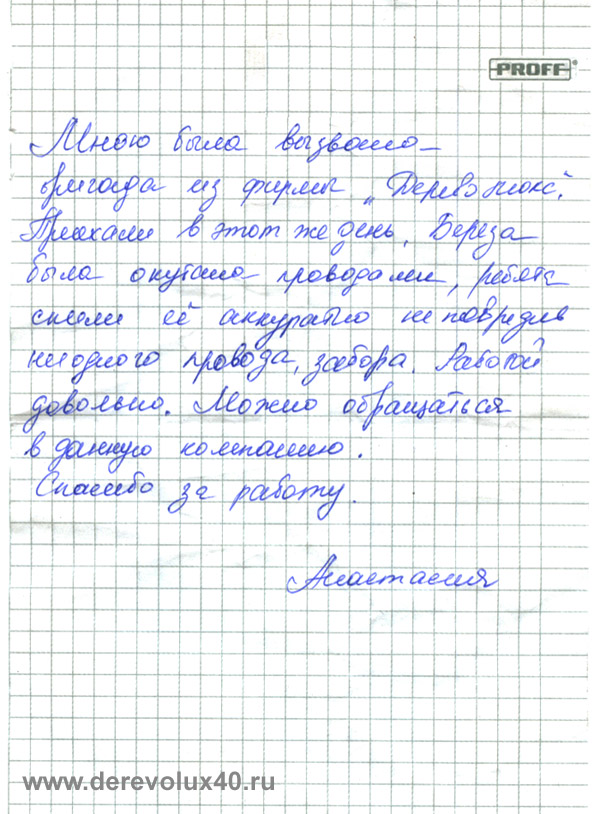 PROFF
Мною была вызвана
бригада из фирмы „Дереволюкс".
Приехали в этот же день, Береза
была окутана проводами, ребята
сняли её аккуратно не повредив
ниодного провода, забора. Работой
довольна. Можно обращаться
в данную компанию.
Спасибо за работу.
Анастасия
www.derevolux40.ru